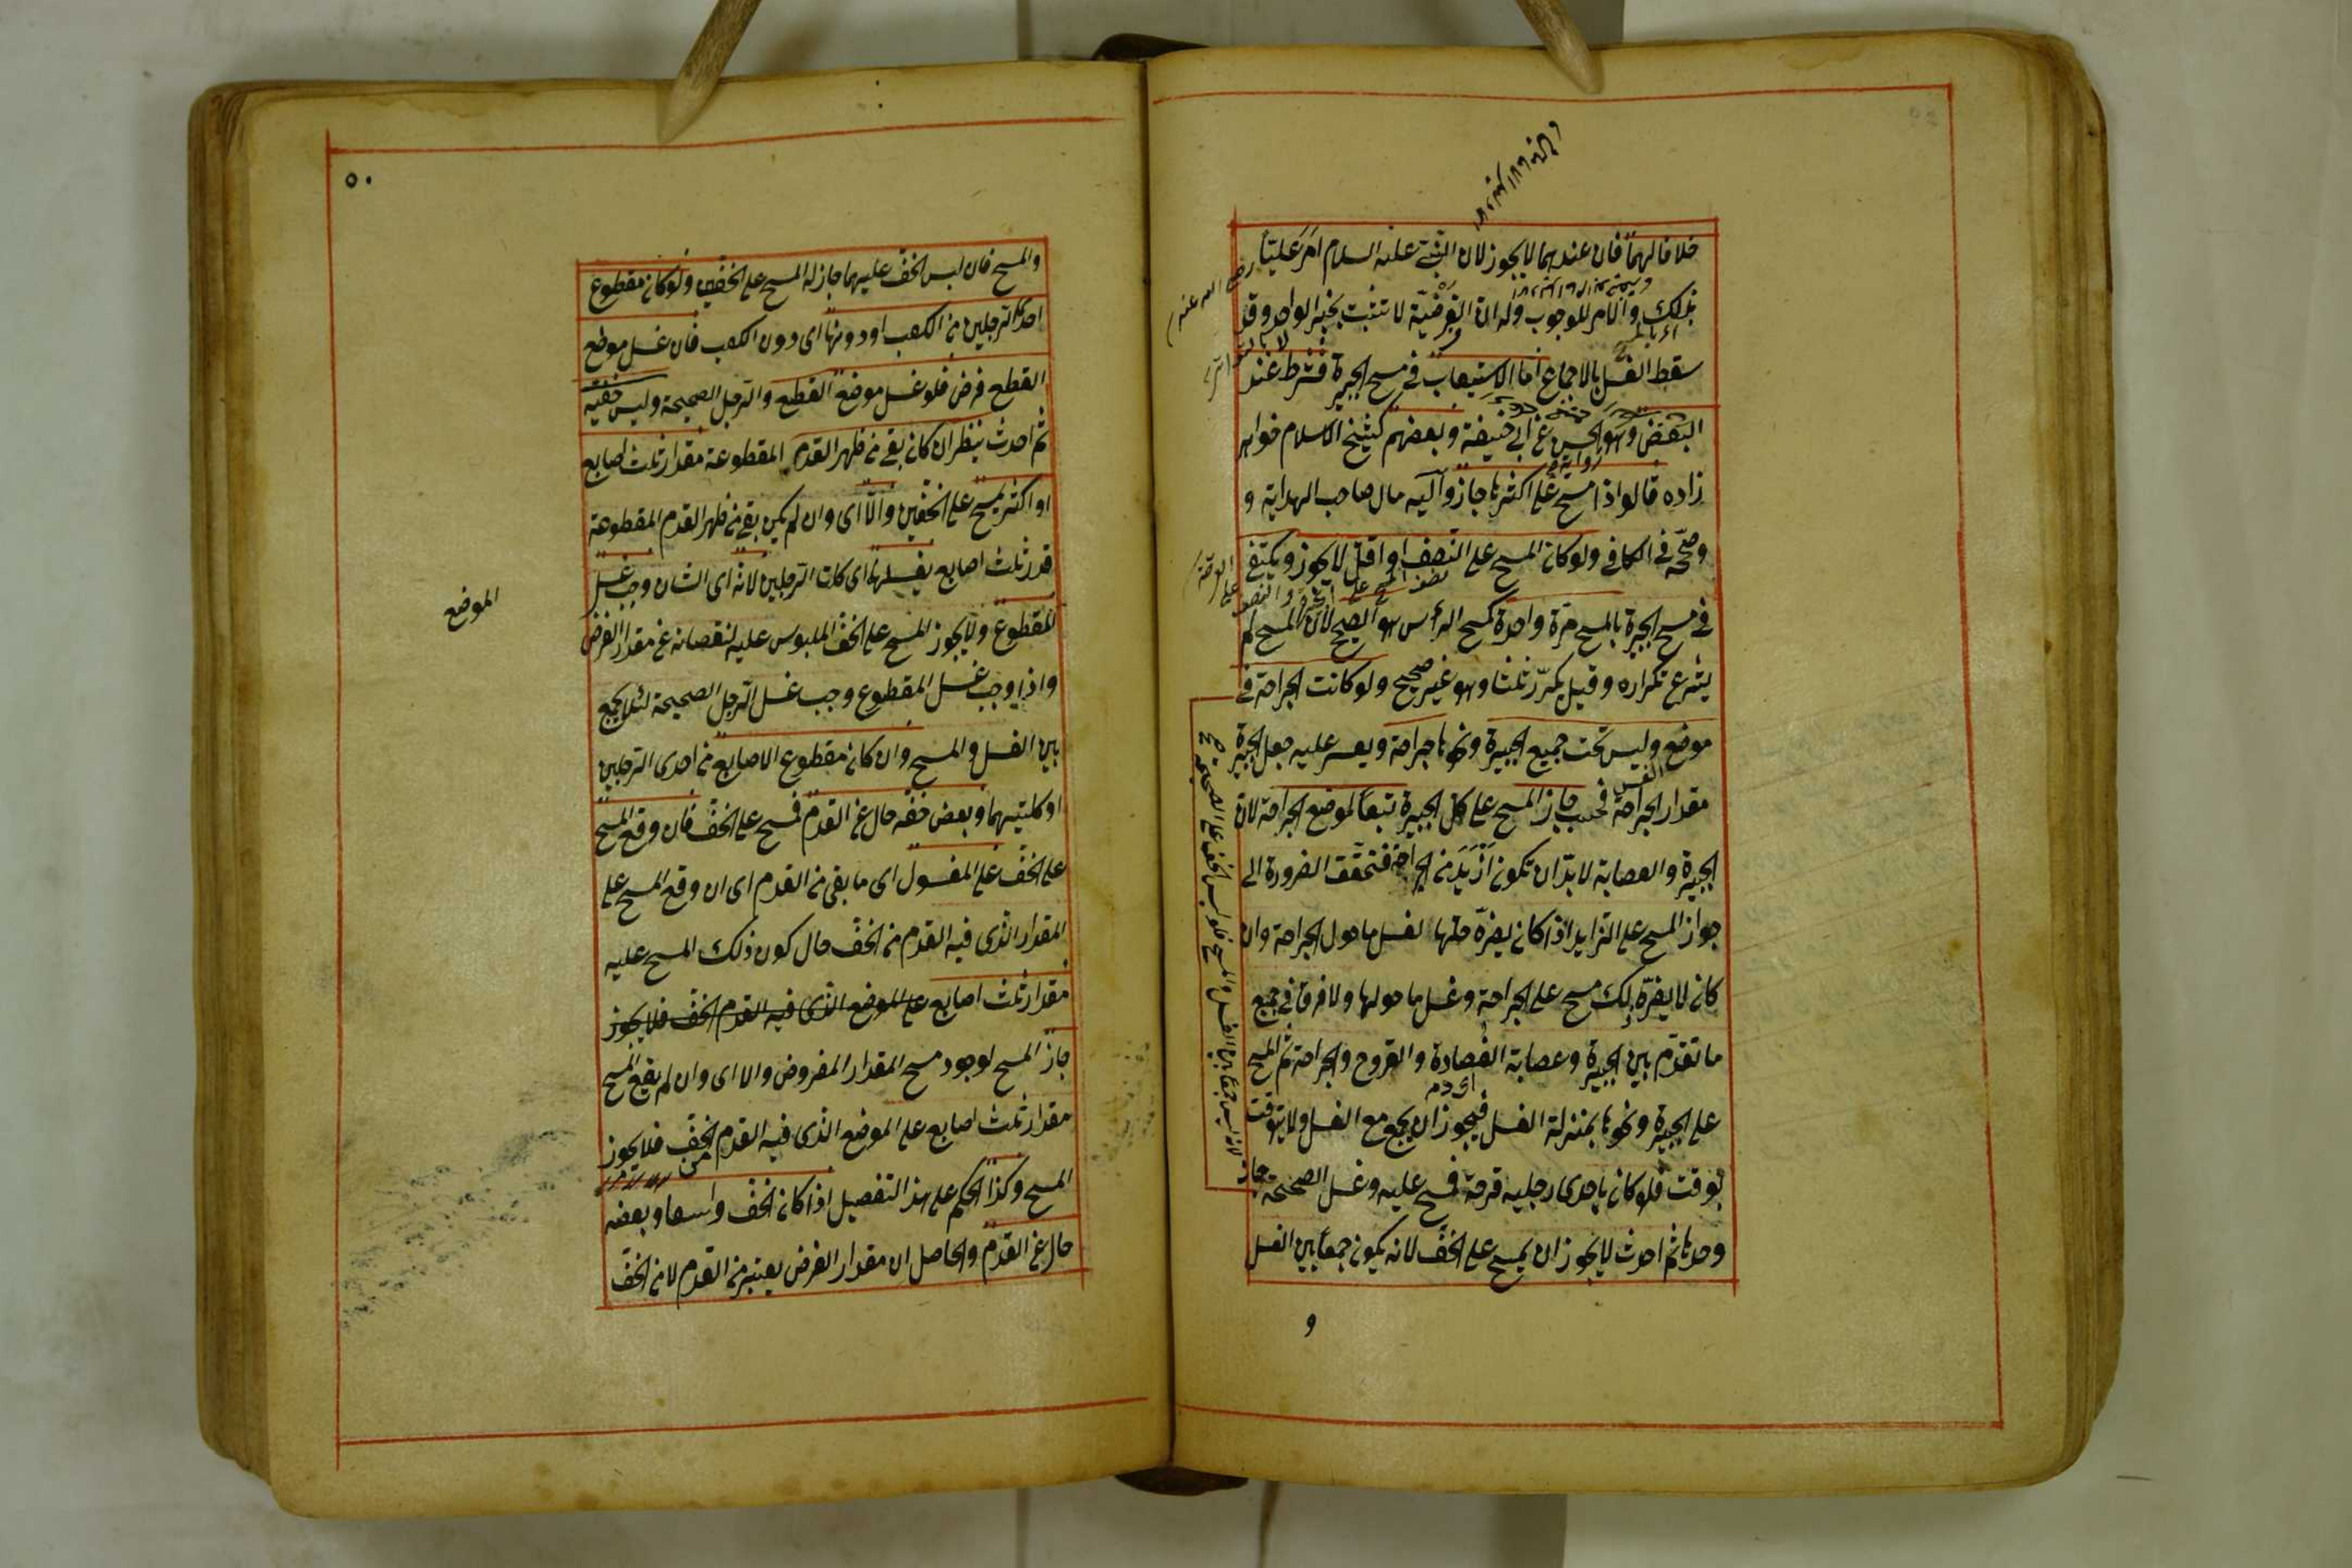 خلافا لهما فان عندهما لا يجوز لان النبي عليه السلام امر عليّا
رضي الله عنه
بذلك والامر للوجوب وله ان الفرضية لا تثبت بخبر الواحد وقد
سقط الغسل بالاجماع اما الاستيعاب في مسح الجبيرة فشرط عند
البعض وهو الحسن عن ابي حنيفة وبعضهم كشيخ الاسلام خواهر
رواية
زاده قالوا اذا مسح على اكثرها جاز وآليه مال صاحب الهداية و
وصحّحه في الكافي ولو كان المسح على النصف او اقل لا يجوز ويكتفى
في مسح الجبيرة بالمسح مرّة واحدة كمسح الرأس هو الصحيح لانّ المسح لم
يشرع تكراره وقيل يكرّر ثلثا وهو غير صحيح ولو كانت الجراحة في
موضع وليس تحت جميع الجبيرة ونحوها جراحة ويعسر عليه جعل الجبيرة
مقدار الجراحة فحسب جاز المسح على كل الجبيرة تبعاً لموضع الجراحة لان
الجبيرة والعصابة لا بدّ ان تكون ازيد من الجراحة فتحقّقت الضرورة الى
جواز المسح على الزايد اذا كان يضرّه حلّها لغسل ما حول الجراحة وان
كان لا يضرّه ذلك مسح على الجراحة وغسل ما حولها ولا فرق في جميع
ما تقدّم بين الجبيرة وعصابة الفصادة والقروح والجراحة ثم المسح
اى دم
على الجبيرة ونحوها بمنزلة الغسل فيجوز ان يجمع مع الغسل ولا يتوقت
بوقت فلو كان باحدى رجليه قرحة فمسح عليه وغسل الصحيحة
وحدها ثم احدث لا يجوز ان يمسح على الخفّ لانه يكون جمعاً بين الغسل
و
٥٠
والمسح فان لبس الخفّ عليهما جاز له المسح على الخفّين ولو كان مقطوع
احدى الرجلين من الكعب او دونها اى دون الكعب فان غسل موضع
القطع فرض فلو غسل موضع القطع والرجل الصحيحة ولبس خفّيه
ثم احدث ينظر ان كان بقي من ظهر القدم المقطوعة مقدار ثلث اصابع
او اكثر يمسح على الخفّين والّا اى وان لم يكن بقي من ظهر القدم المقطوعة
قدر ثلث اصابع يغسلها اى كلت الرجلين لانه اى الشان وجب غسل
الموضع
المقطوع ولا يجوز المسح على الخفّ الملبوس عليه لنقصانه عن مقدار الفرض
واذا وجب غسل المقطوع وجب غسل الرجل الصحيحة لئلا يجمع
بين الغسل والمسح وان كان مقطوع الاصابع من احدى الرجلين
او كلتيهما وبعض خفّه خال عن القدم فمسح على الخفّ فان وقع المسح
على الخفّ على المغسول اى ما بقى من القدم اى ان وقع المسح على
المقدار الذى فيه القدم من الخفّ حال كون ذلك المسح عليه
مقدار ثلث اصابع على الموضع الذى فيه القدم الخفّ فلا يجوز
جاز المسح لوجود مسح المقدار المفروض والا اى وان لم يقع المسح
مقدار ثلث اصابع على الموضع الذى فيه القدم من الخفّ فلا يجوز
المسح وكذا الحكم على هذا التفصيل اذا كان الخفّ واسعا وبعضه
خال عن القدم والحاصل ان مقدار الفرض يعتبر من القدم لا من الخفّ